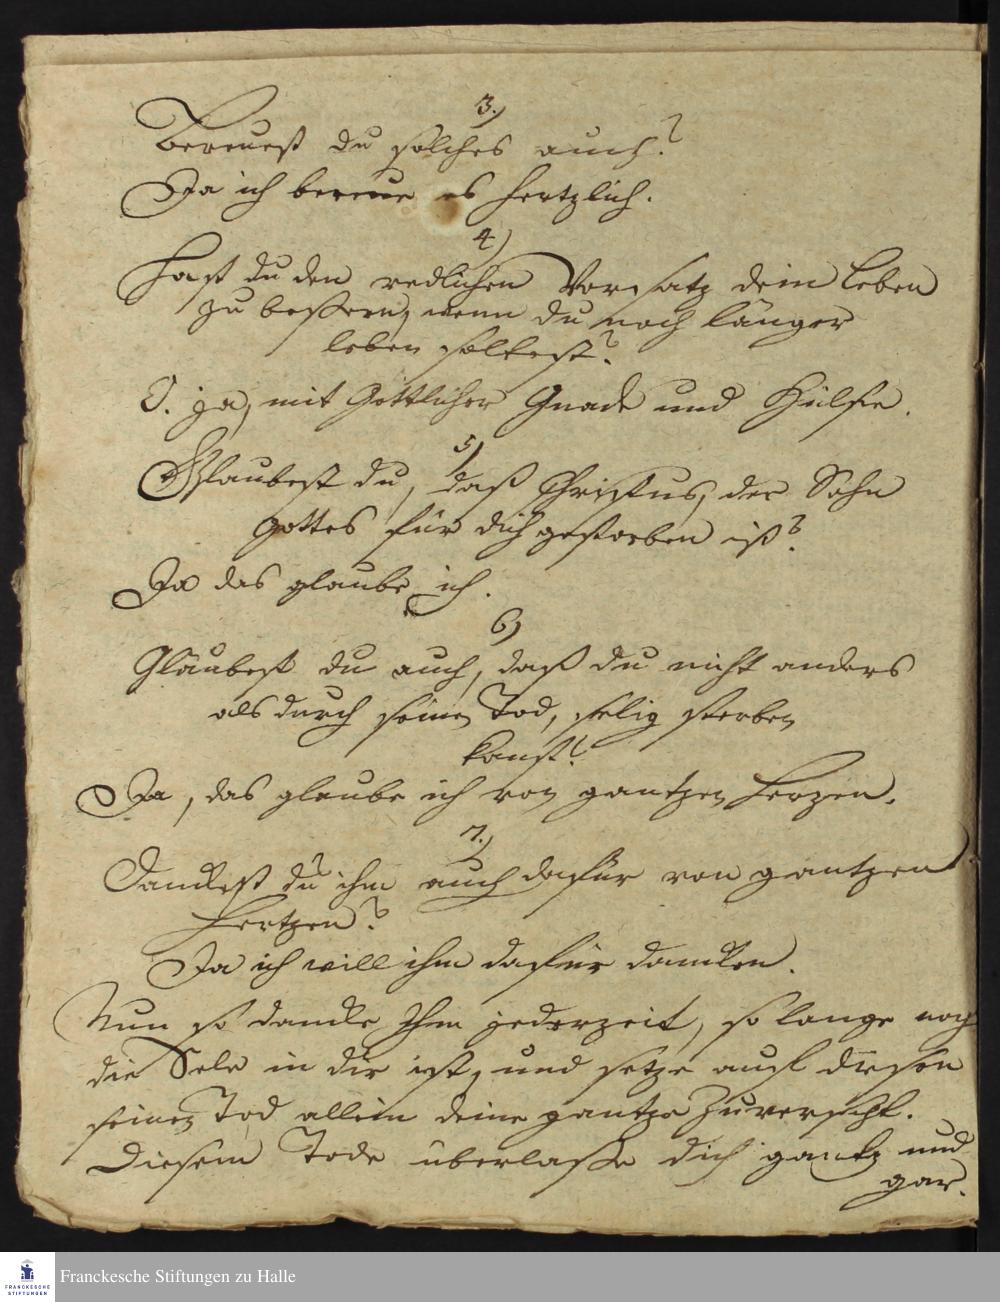 3.)
Bereuest du solches auch?
Ja ich bereue es hertzlich.
4)
Hast du den redlichen Vorsatz dein Leben
zu beßern, wenn du noch länger
leben soltest?
O. ja, mit Göttlicher Gnade und Hülfe.
5)
Glaubest du, daß Christus, der Sohn
Gottes für dich gestorben ist?
Ja das glaube ich.
6)
Glaubest du auch, daß du nicht anders
als durch seinen Tod, selig sterben
kanst?
Ja, das glaube ich von gantzen Herzen.
7.)
Danckest du ihm auch dafür von gantzen
Hertzen?
Ja ich will ihm dafür dancken.
Nun so dancke Ihm jederzeit, so lange noch
die Sele in dir ist, und setze auf diesen
seinen Tod allein deine gantze Zuversicht.
Diesem Tode überlaße dich gantz und
gar.
FRANCKESCHE
STIFTUNGEN
Franckesche Stiftungen zu Halle